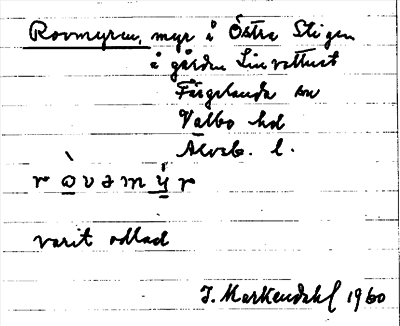 Rovmyren, myr å Östra Stigen
å gården Linvattnet
Färgelanda sn
Valbo hd
Älvsb. l.
r ò v ə m ý r
varit odlad
J. Markendahl 1960